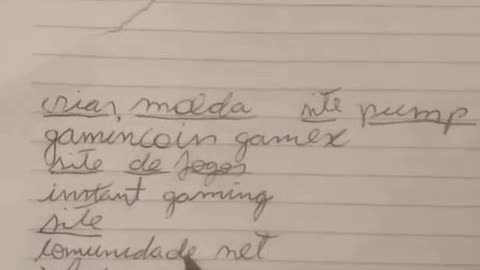 criar, moeda site pump
gamincoin gamex
site de jogos
instant gaming
site
comunidade net